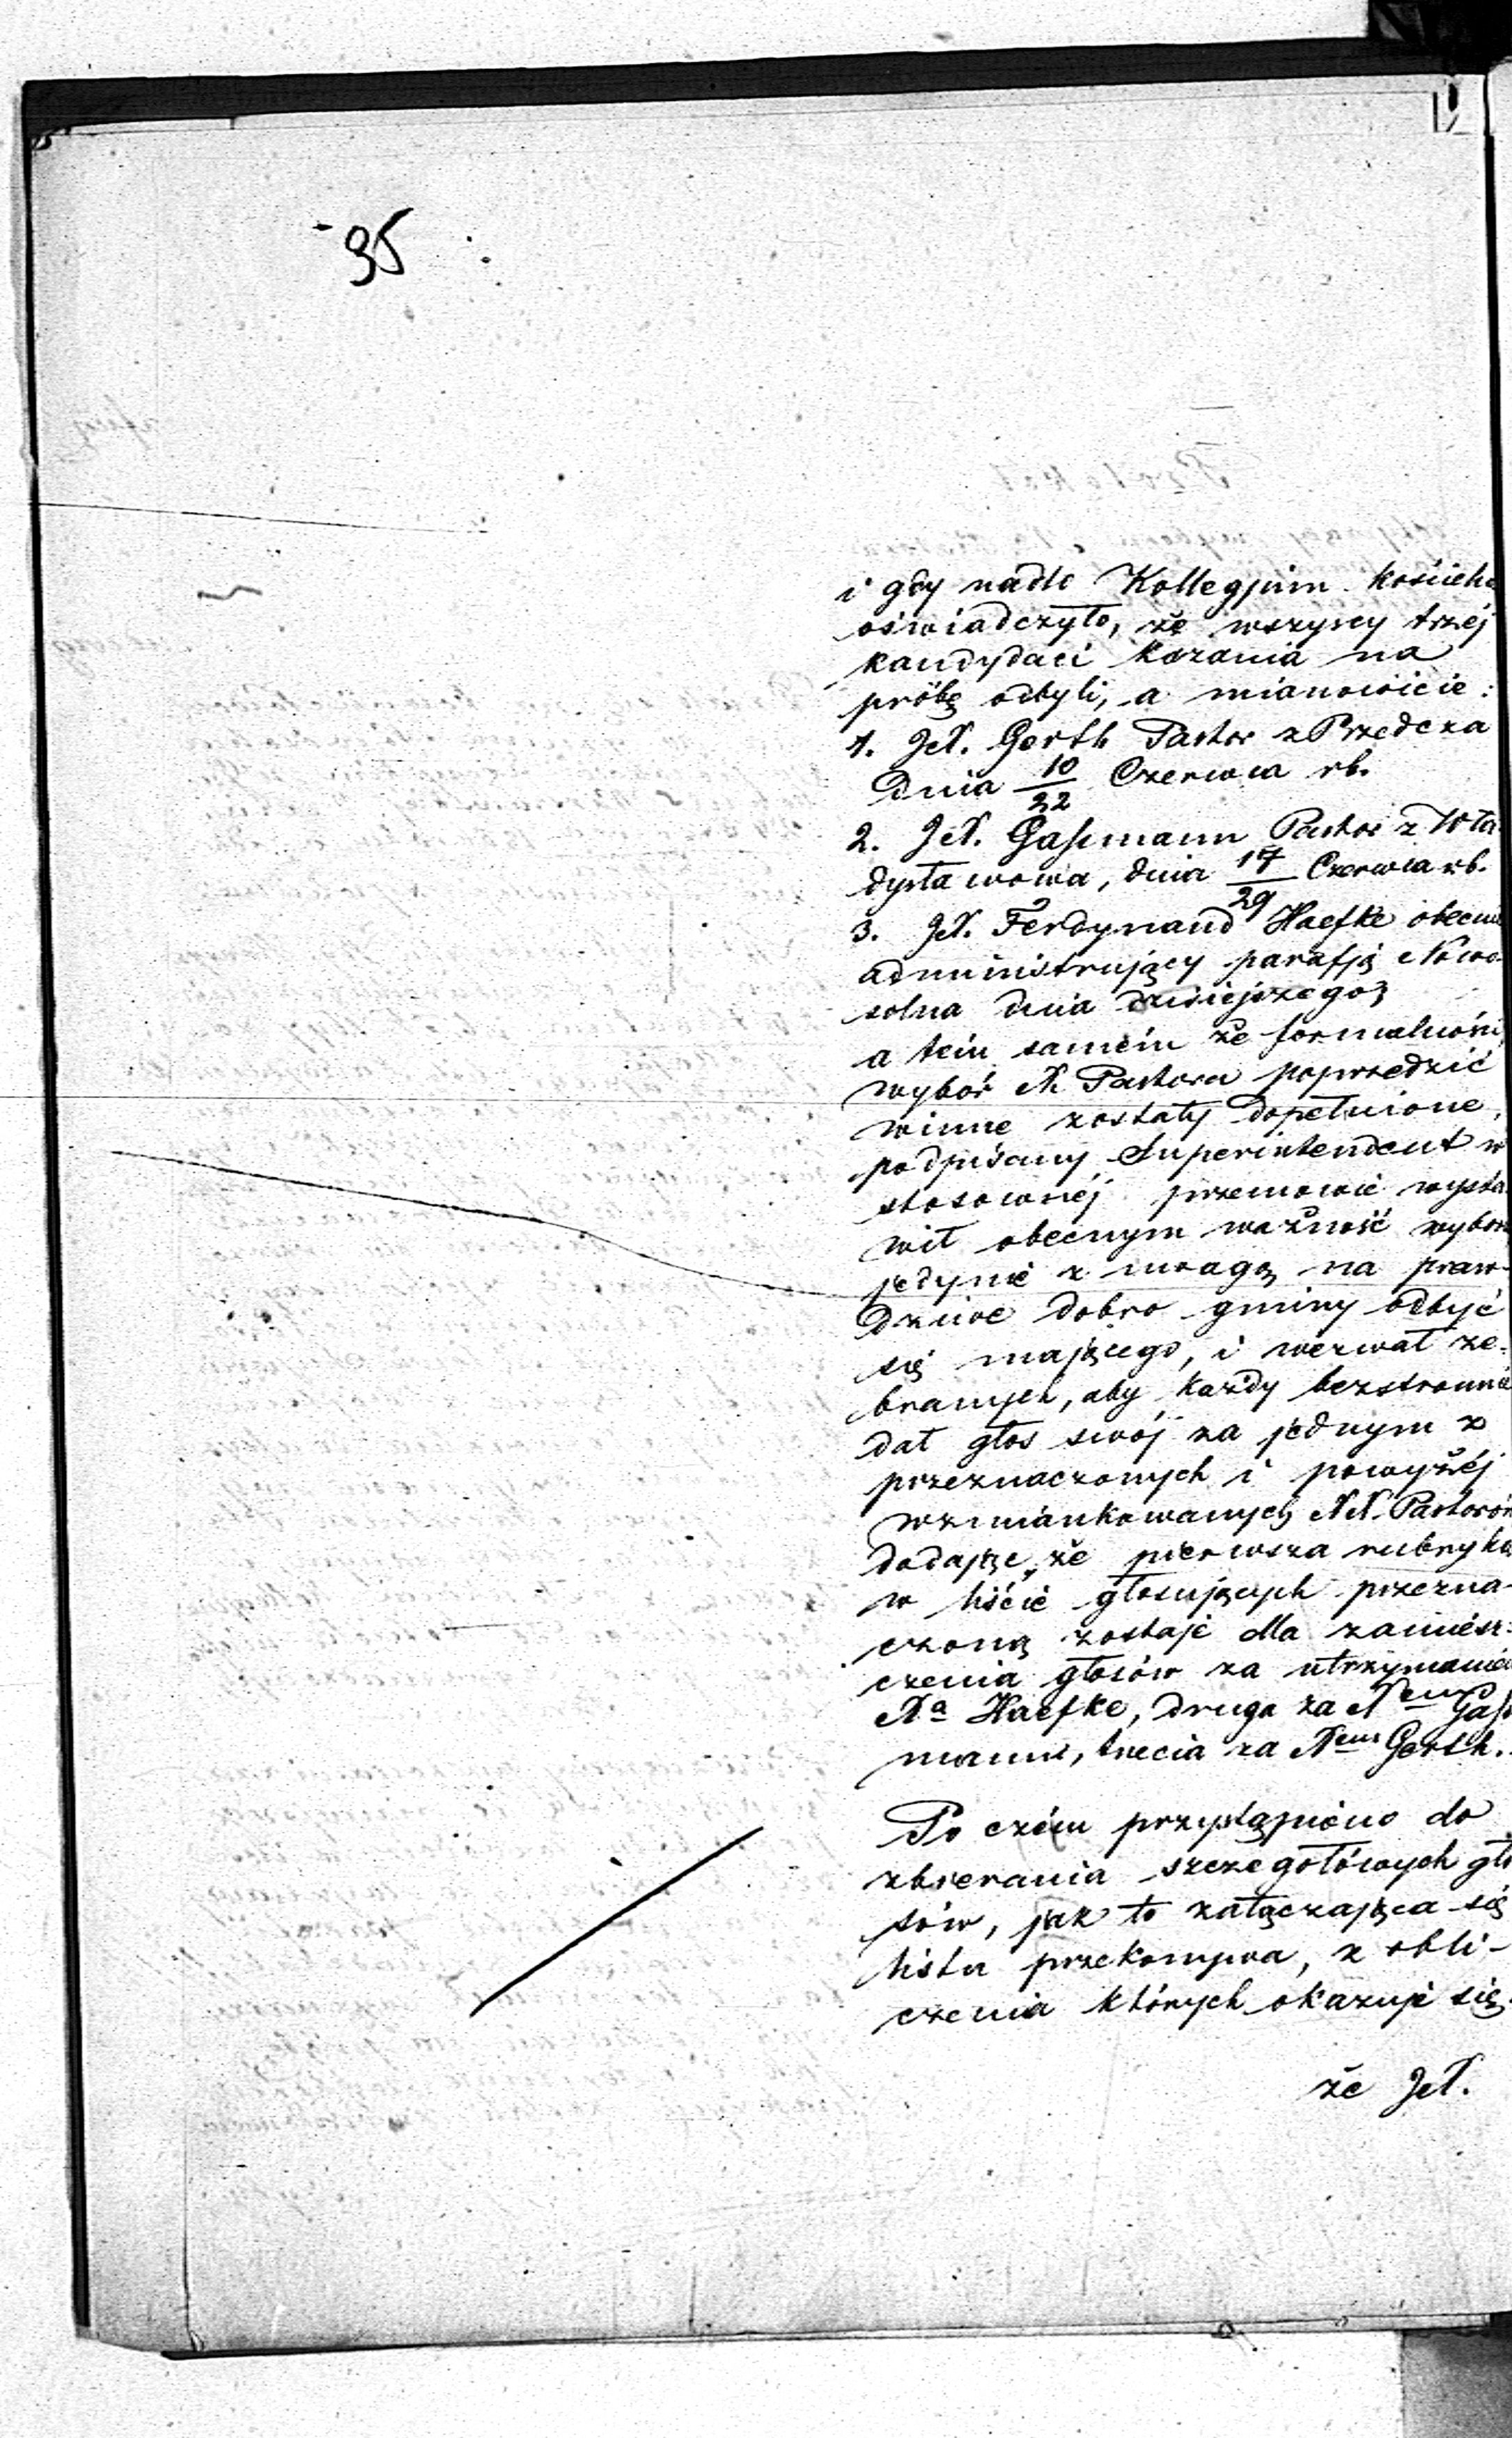 95
i gdy nadto Kollegjum kościelne
oświadczyło, że wszyscy trzéj
kandydaci kazania na
próbę odbyli, a mianowicie:
1. JX. Gerth Pastor z Przedcza
dnia 10/22 Czerwca rb.
2. JX. Gaſsmann Pastor z Wła
dysławowa, dnia 17/29 Czerwca rb.
3. JX. Ferdynand Haefke obecnie
administrujący parafją Nowo-
solna dnia dzisiejszego,
a tém samém że formalności,
wybór X. Pastora poprzedzić
winne zostały dopełnione,
podpisany Superintendent w
stosownéj przemowie wysta
wił obecnym ważność wyboru
jedynie z uwagą na praw-
dziwe dobro gminy odbyć
się mającego, i wezwał ze-
branych, aby każdy bezstronnie
dał głos swój za jednym z
przeznaczonych i powyżéj
wzmiankowanych XX. Pastorów
dodając, że pierwsza rubryka
w liście głosujących przezna-
czoną zostaje dla zamiesz-
czenia głosów za utrzymaniem
Xa Haefke, druga za Xem Gaſs
mann, trzecia za Xem Gerth.
Po czém przystąpiono do
zbierania szczegółowych gło
sów, jak to załączająca się
lista przekonywa, z obli-
czenia których okazuje się
że JX.